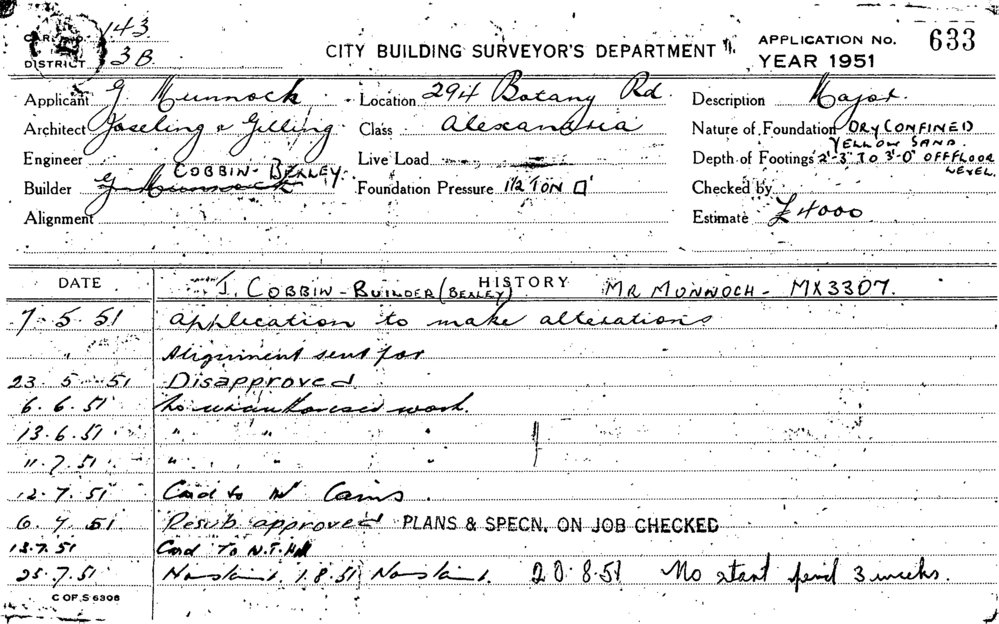 CARD NO. 143
DISTRICT 3B
CITY BUILDING SURVEYOR'S DEPARTMENT
APPLICATION NO. 633
YEAR 1951
Applicant G Munnock Location 294 Botany Rd Description Major.
Architect Joseling & Gilling Class Alexandria Nature of Foundation DRY CONFINED
YELLOW SAND.
Engineer Live Load Depth of Footings 2'-3" TO 3'-0" OFF FLOOR LEVEL.
COBBIN - BEXLEY.
Builder G Munnock Foundation Pressure 1½ TON □' Checked by
Alignment Estimate £4000
DATE HISTORY
J. COBBIN - BUILDER (BEXLEY) MR MUNNOCH - MX3307.
7-5-51 Application to make alterations
" Alignment sent for
23.5.51 Disapproved
6.6.51 No unauthorised work.
13.6.51 " " "
11.7.51 " " "
12.7.51 Card to Mr Cains.
6 7 51 Resub approved PLANS & SPECN. ON JOB CHECKED
13.7.51 Card To N.T.
25.7.51 No start. 1.8.51 No start. 20.8.51 No start 3 weeks.
C OF S 6308